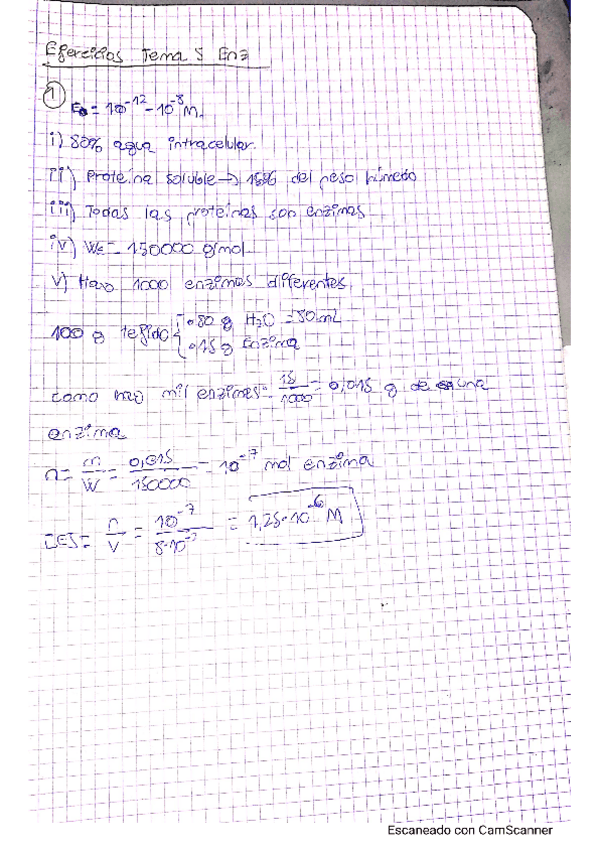 Ejercicios Tema 5 Enz
1
E₀ = 10⁻¹² - 10⁻⁸ M.
i) 80% agua intracelular.
ii) Proteína soluble → 15% del peso húmedo
iii) Todas las proteínas son enzimas
iv) We = 150000 g/mol
v) Hay 1000 enzimas diferentes
100 g tejido { • 80 g H₂O = 80 mL
• 15 g Enzima
como hay mil enzimas = 15/1000 = 0,015 g de una
enzima
n = m/W = 0,015/150000 = 10⁻⁷ mol enzima
[E] = n/V = 10⁻⁷/8·10⁻² = 1,25·10⁻⁶ M
Escaneado con CamScanner